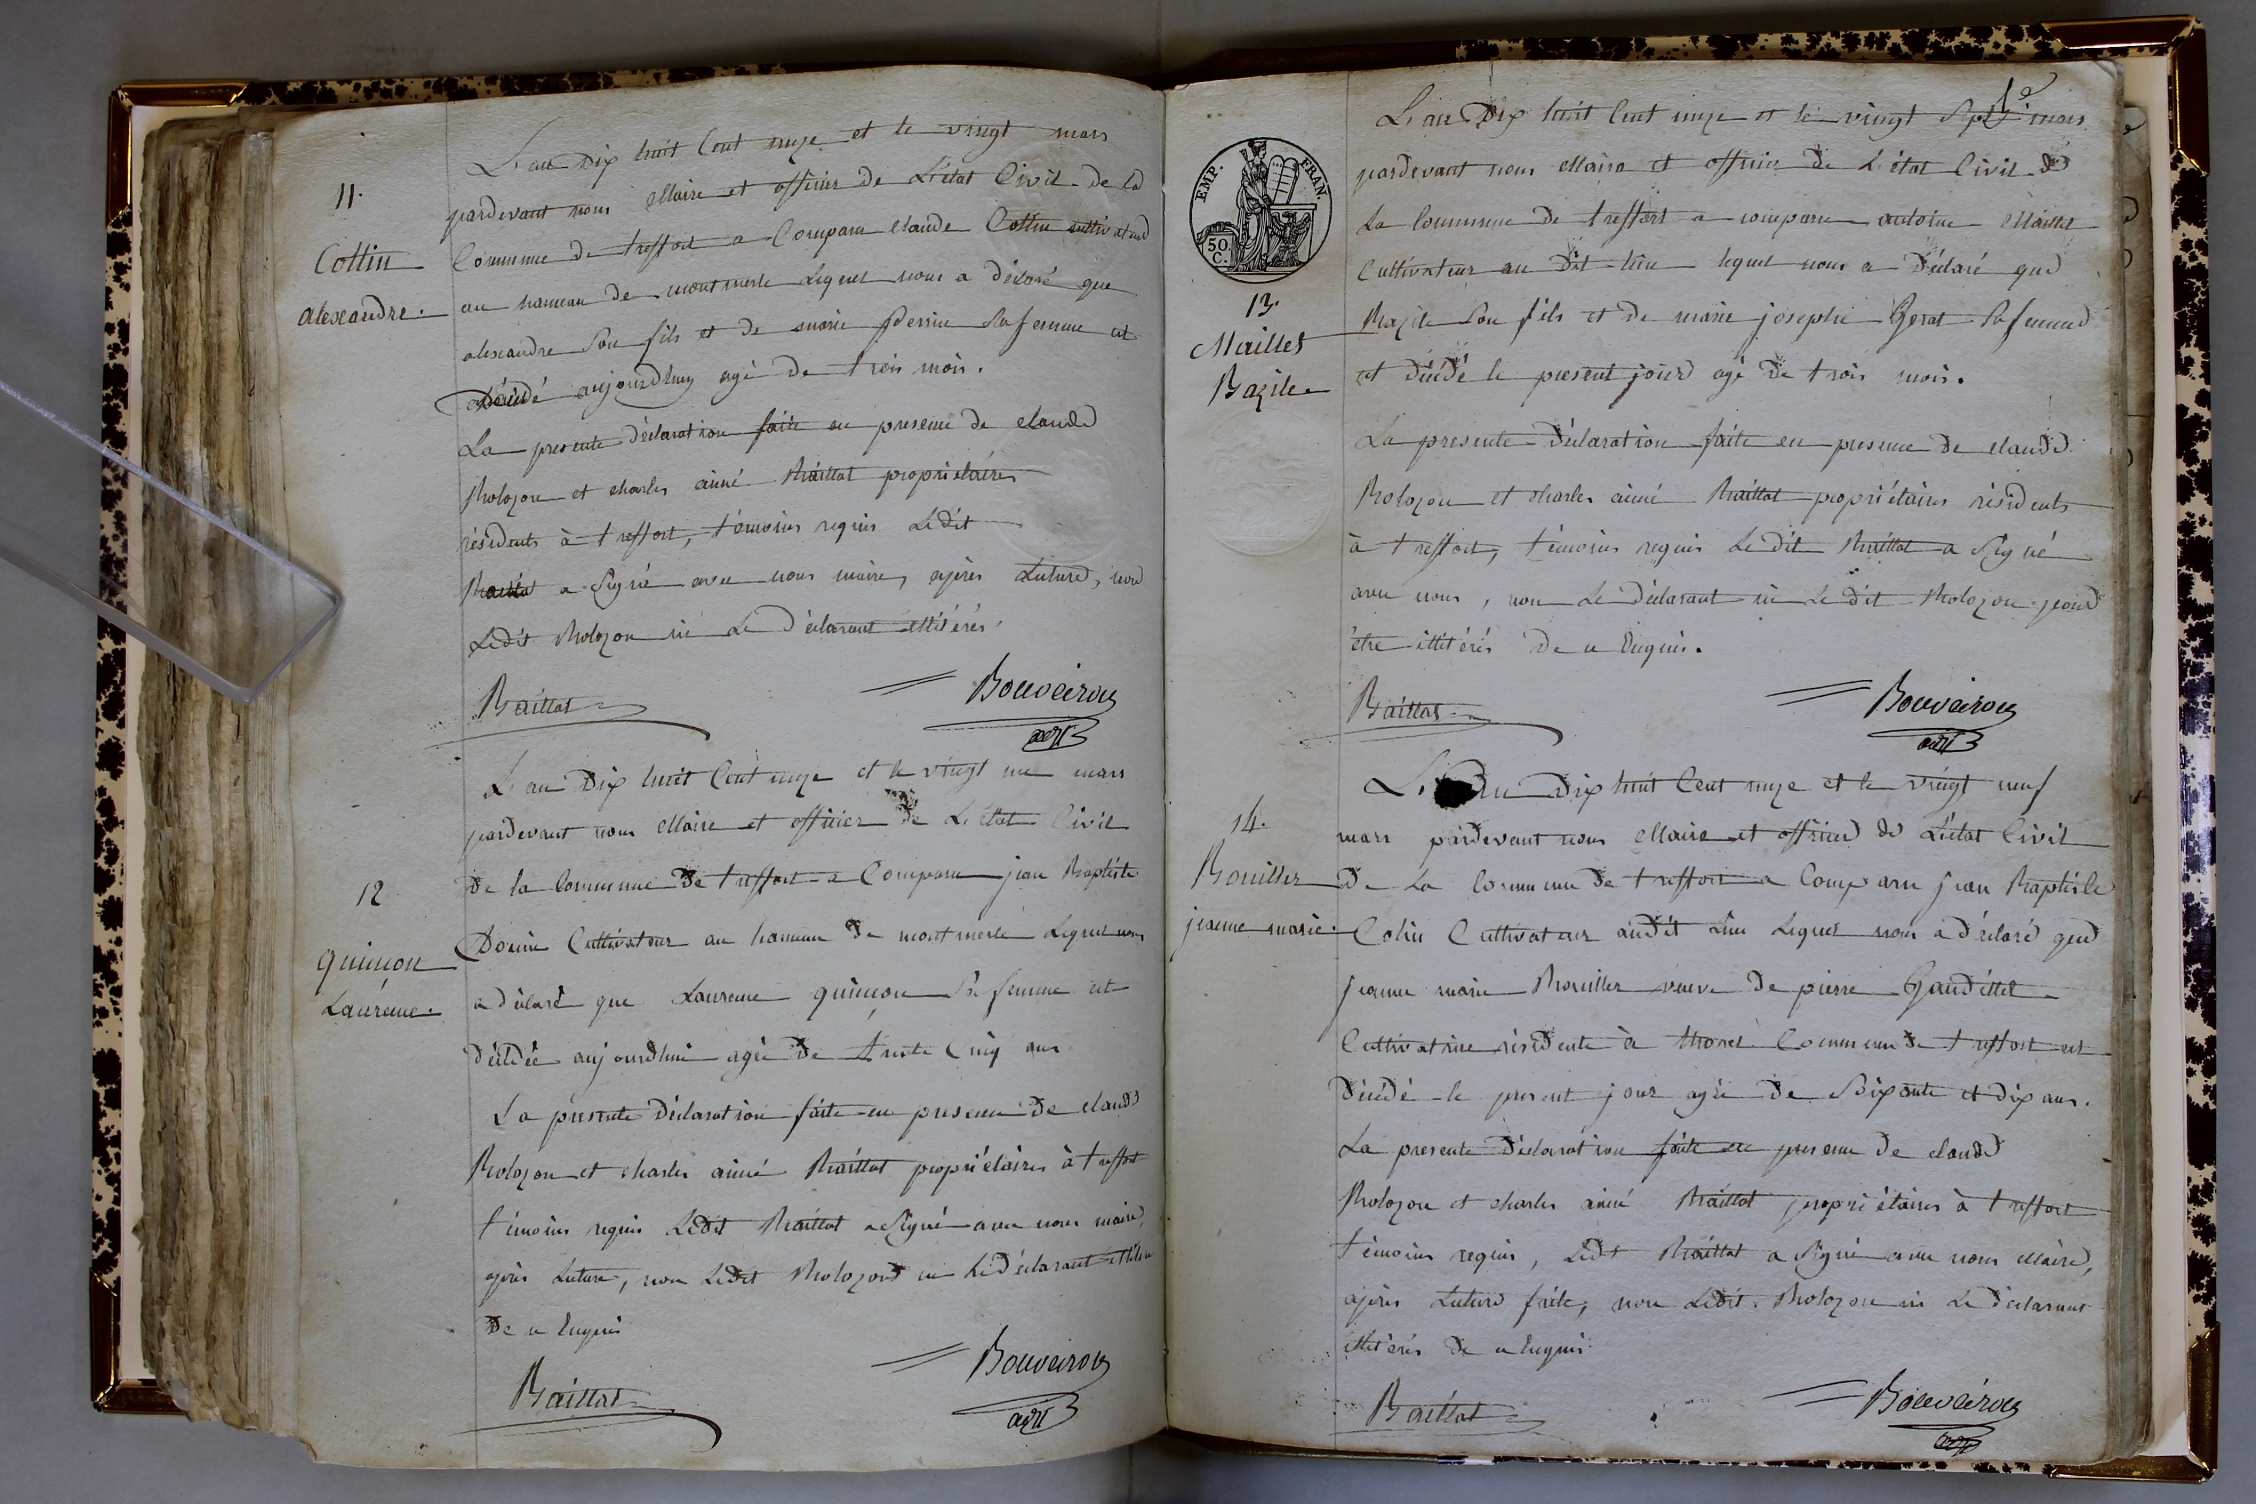 11.
Cottin
alexandre.
L'an Dix huit Cent onze et le vingt mars
pardevant nous Maire et officier de L'état Civil de la
Commune de treffort a Comparu claude Cottin cultivateur
au hameau de montmerle Lequel nous a déclaré que
alexandre Son fils et de marie perrin Sa femme est
Décédé aujourdhuy agé de trois mois.
La presente déclaration faite en presence de claude
Bolozon et charles aimé Baillat propriétaires
résidents à treffort, témoins requis Ledit
Baillat a Signé avec nous maire, après Lecture, non
Ledit Bolozon ni Le déclarant illitérés.
Baillat
Bouveirou
12
quinson
Laurence.
L'an Dix huit Cent onze et le vingt un mars
pardevant nous Maire et officier de L'état Civil
De la Commune De treffort a Comparu jean Baptiste
Cultivateur au hameau de montmerle Lequel nous
a déclaré que Laurence quinson Sa femme est
décédée aujourdhui agée De trente Cinq ans
La presente Déclaration faite en presence De claude
Bolozon et charles aimé Baillat propriétaires à treffort
témoins requis Ledit Baillat a Signé avec nous maire,
après Lecture, non Ledit Bolozon ni Le déclarant
De ce Enquis
Baillat
Bouveirou
EMP. FRAN.
50 C.
13.
Maillet
Bazile
L'an Dix huit Cent onze et le vingt Sept mars
pardevant nous Maire et officier de L'état Civil de
La Commune de treffort a comparu antoine Maillet
Cultivateur au Dit lieu lequel nous a Déclaré que
Bazile Son fils et de marie josephe Sa femme
est décédé le present jour agé De trois mois.
La presente Déclaration faite en presence De claude
Bolozon et charles aimé Baillat propriétaires résidents
à treffort, témoins requis Le dit Baillat a Signé
avec nous, non Le déclarant ni Le dit Bolozon pour
être illitérés De ce Enquis.
Baillat
Bouveirou
14.
Bouiller
jeanne marie.
L'an Dix huit Cent onze et le vingt neuf
mars pardevant nous Maire et officier de L'état Civil
De La Commune De treffort a Comparu jean Baptiste
Colin Cultivateur audit Lieu Lequel nous a déclaré que
jeanne marie Bouiller veuve De pierre
Cultivatrice résidente à Commune De treffort est
Décédé le present jour agée De Soixante et dix ans.
La presente Déclaration faite en presence De claude
Bolozon et charles aimé Baillat propriétaires à treffort
témoins requis, Ledit Baillat a Signé avec nous Maire,
après Lecture faite, non Ledit Bolozon ni Le déclarant
illitérés De ce Enquis
Baillat
Bouveirou